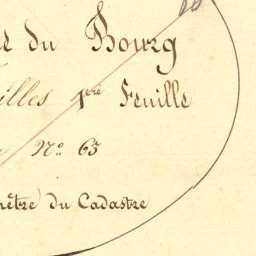 du Bourg
illes 1ère Feuille
No 63
mètre du Cadastre